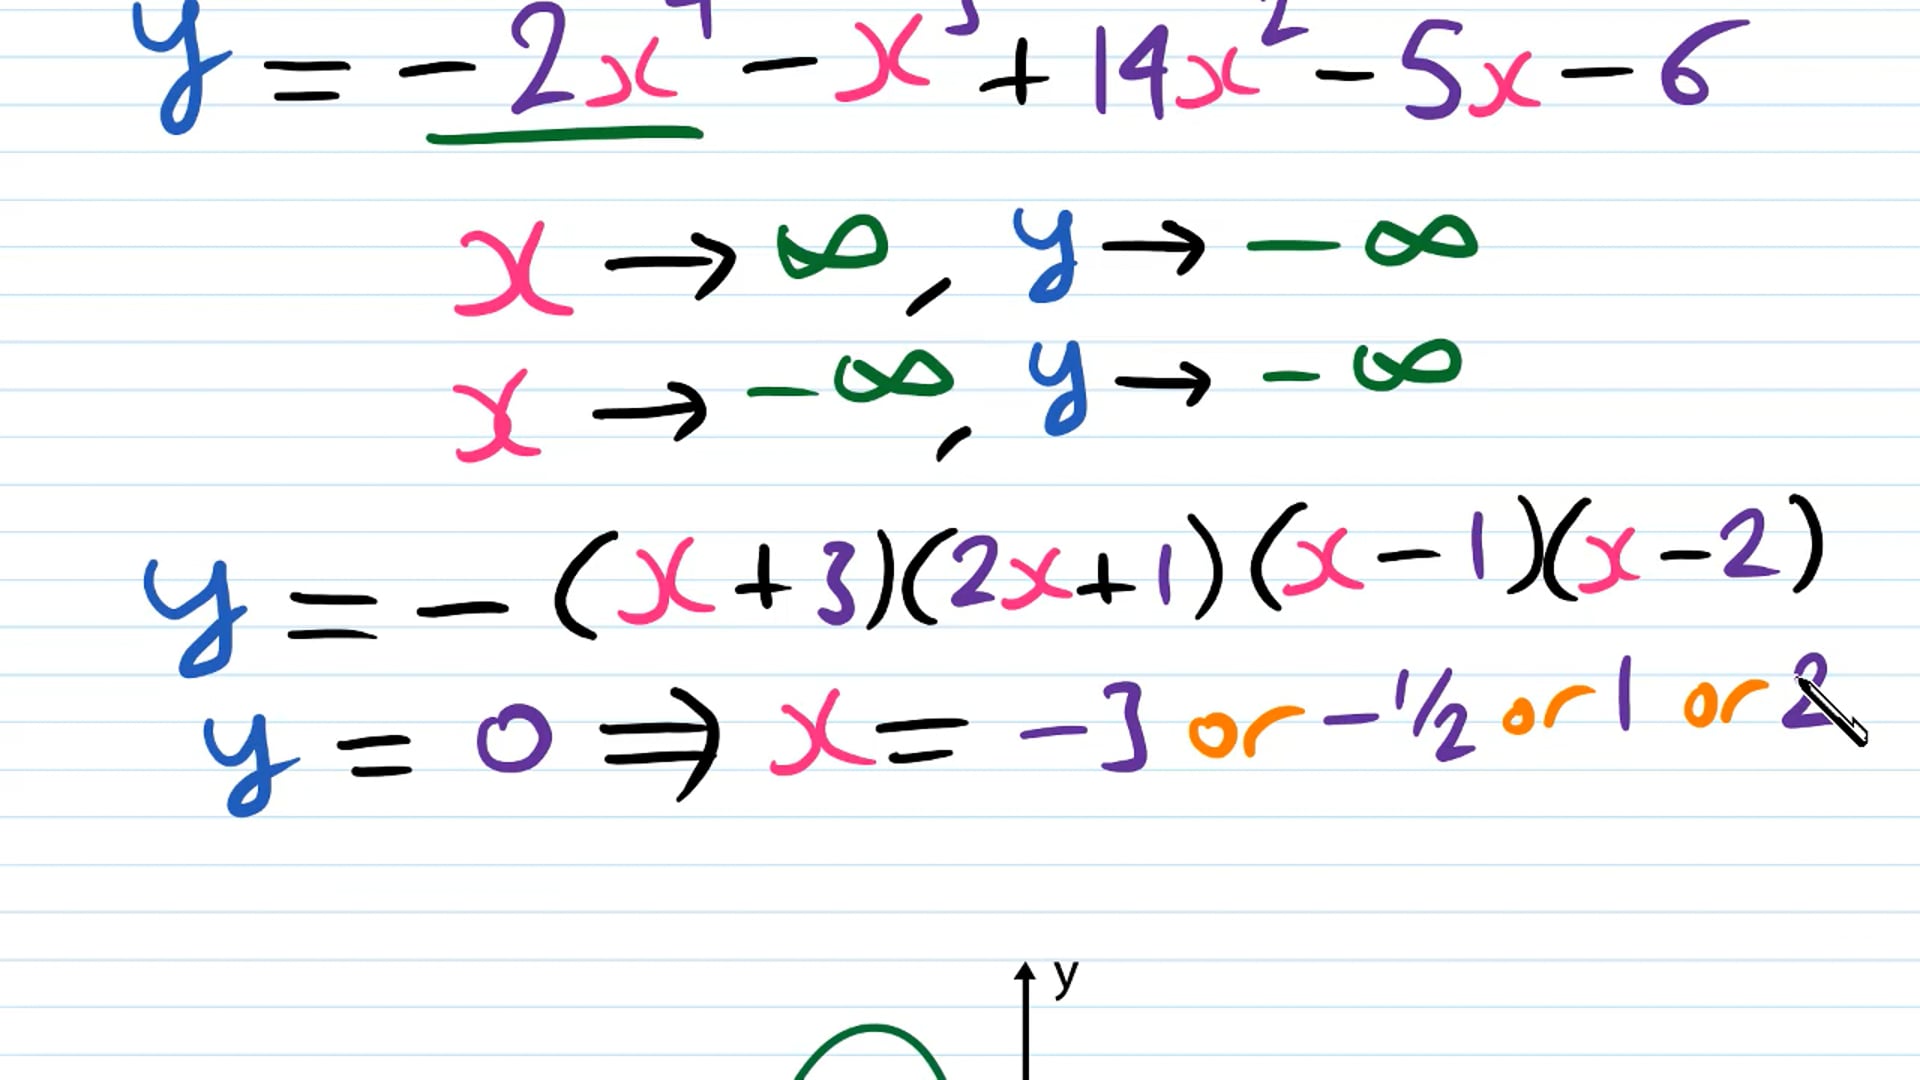 y = - 2x⁴ - x³ + 14x² - 5x - 6
x → ∞, y → - ∞
x → - ∞, y → - ∞
y = - (x + 3)(2x + 1)(x - 1)(x - 2)
y = 0 ⇒ x = - 3 or - 1/2 or 1 or 2
y